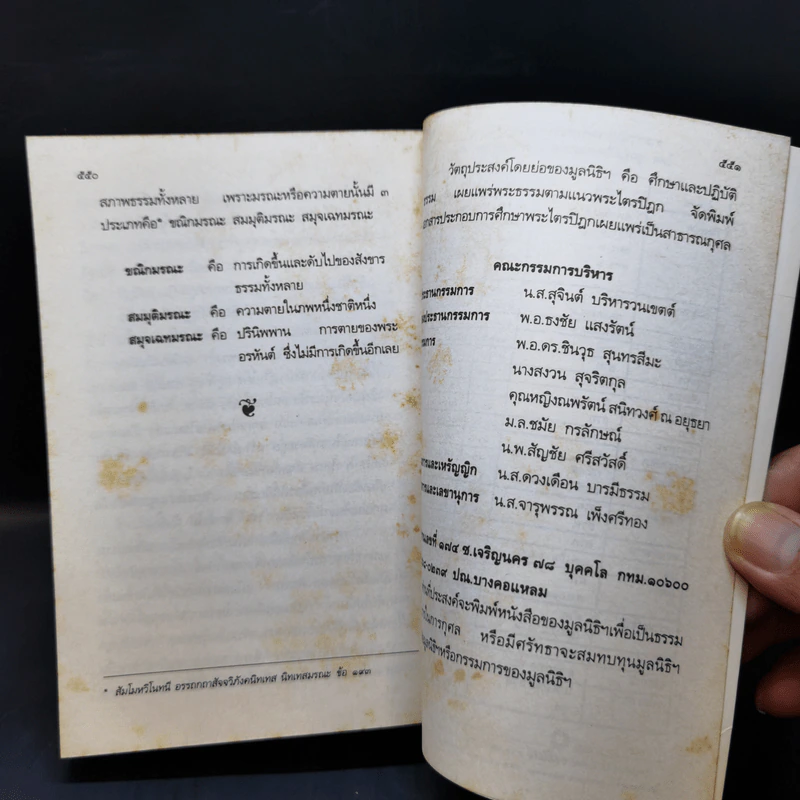 ๕๕๐
สภาพธรรมทั้งหลาย เพราะมรณะหรือความตายนั้นมี ๓
ประเภทคือ* ขณิกมรณะ สมมุติมรณะ สมุจเฉทมรณะ
ขณิกมรณะ คือ การเกิดขึ้นและดับไปของสังขาร
ธรรมทั้งหลาย
สมมุติมรณะ คือ ความตายในภพหนึ่งชาติหนึ่ง
สมุจเฉทมรณะ คือ ปรินิพพาน การตายของพระ
อรหันต์ ซึ่งไม่มีการเกิดขึ้นอีกเลย
* สัมโมหวิโนทนี อรรถกถาสัจจวิภังคนิทเทส นิทเทสมรณะ ข้อ ๑๙๓
๕๕๑
วัตถุประสงค์โดยย่อของมูลนิธิฯ คือ ศึกษาและปฏิบัติ
ธรรม เผยแพร่พระธรรมตามแนวพระไตรปิฎก จัดพิมพ์
เอกสารประกอบการศึกษาพระไตรปิฎกเผยแพร่เป็นสาธารณกุศล
คณะกรรมการบริหาร
ประธานกรรมการ น.ส.สุจินต์ บริหารวนเขตต์
องประธานกรรมการ พ.อ.ธงชัย แสงรัตน์
รมการ พ.อ.ดร.ชินวุธ สุนทรสีมะ
นางสงวน สุจริตกุล
คุณหญิงณพรัตน์ สนิทวงศ์ ณ อยุธยา
ม.ล.ชมัย กรลักษณ์
น.พ.สัญชัย ศรีสวัสดิ์
การและเหรัญญิก น.ส.ดวงเดือน บารมีธรรม
การและเลขานุการ น.ส.จารุพรรณ เพ็งศรีทอง
นเลขที่ ๑๗๔ ซ.เจริญนคร ๗๘ บุคคโล กทม.๑๐๖๐๐
๐๒๓๙ ปณ.บางคอแหลม
ประสงค์จะพิมพ์หนังสือของมูลนิธิฯเพื่อเป็นธรรม
ในการกุศล หรือมีศรัทธาจะสมทบทุนมูลนิธิฯ
มูลนิธิฯหรือกรรมการของมูลนิธิฯ